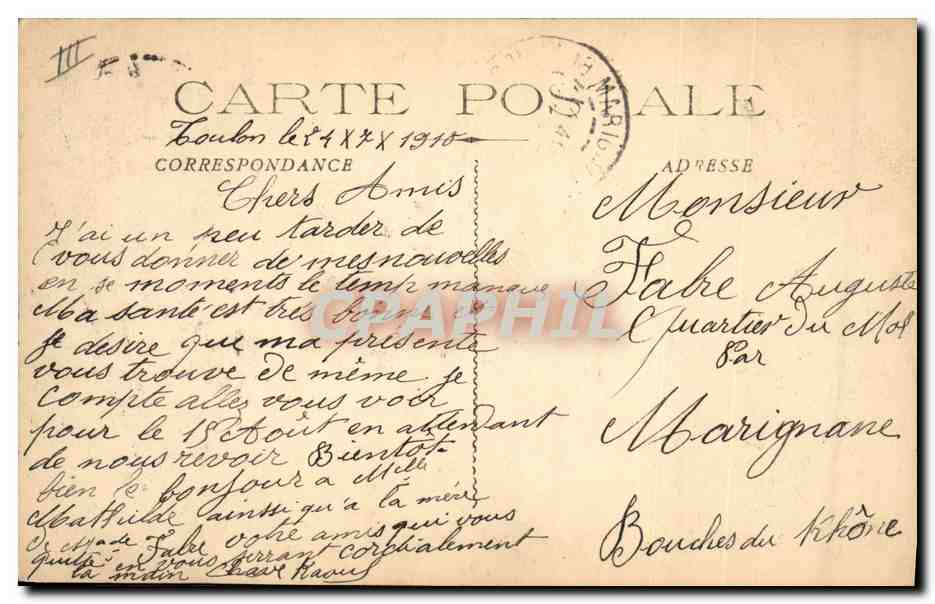 III
CARTE POSTALE
MARIGN
Toulon le 24 X 7 X 1910
CORRESPONDANCE
Chers Amis
J'ai un peu tarder de
vous donner de mes nouvelles
en se moments le temp manque
Ma santé est trés bonne et
je désire que ma présente
vous trouve de même. je
compte allez vous voir
pour le 15 Août en attendant
de nous revoir Bientot.
bien le bonjour a Mlle
Mathilde ainssi qu'a la mère
de Fabre votre amis qui vous
quitte en vous serrant cordialement
la main Chave Raoul
ADRESSE
Monsieur
Fabre Auguste
Quartier du Mol
Par
Marignane
Bouches du Rhône
CPAPHIL